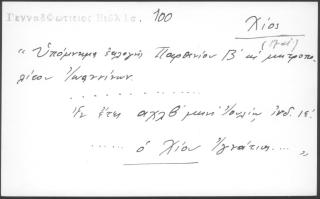 Γενναδψωτισιος Βιβλ. 100
Χίος
" Ὑπόμνημα ἐκλογῆς Παρθενίου Β' ὡς μητροπο-
λίτου Ἰωαννίνων.
. . . . . . . . . . . . . .
Ἐν ἔτει αχλβ' μηνὶ Ἰουλίῳ ἰνδ. ιε'.
. . . . ὁ Χίου Ἰγνάτιος... "